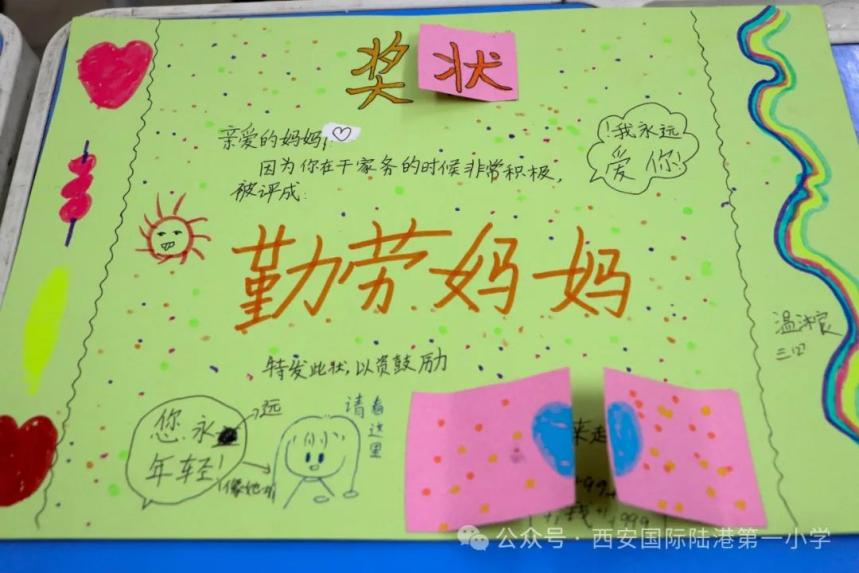 奖状
亲爱的妈妈:
因为你在干家务的时候非常积极,
被评成:
!我永远
爱你!
勤劳妈妈
特发此状,以资鼓励
您永
远
年轻!
请看这里
三
公众号 · 西安国际陆港第一小学